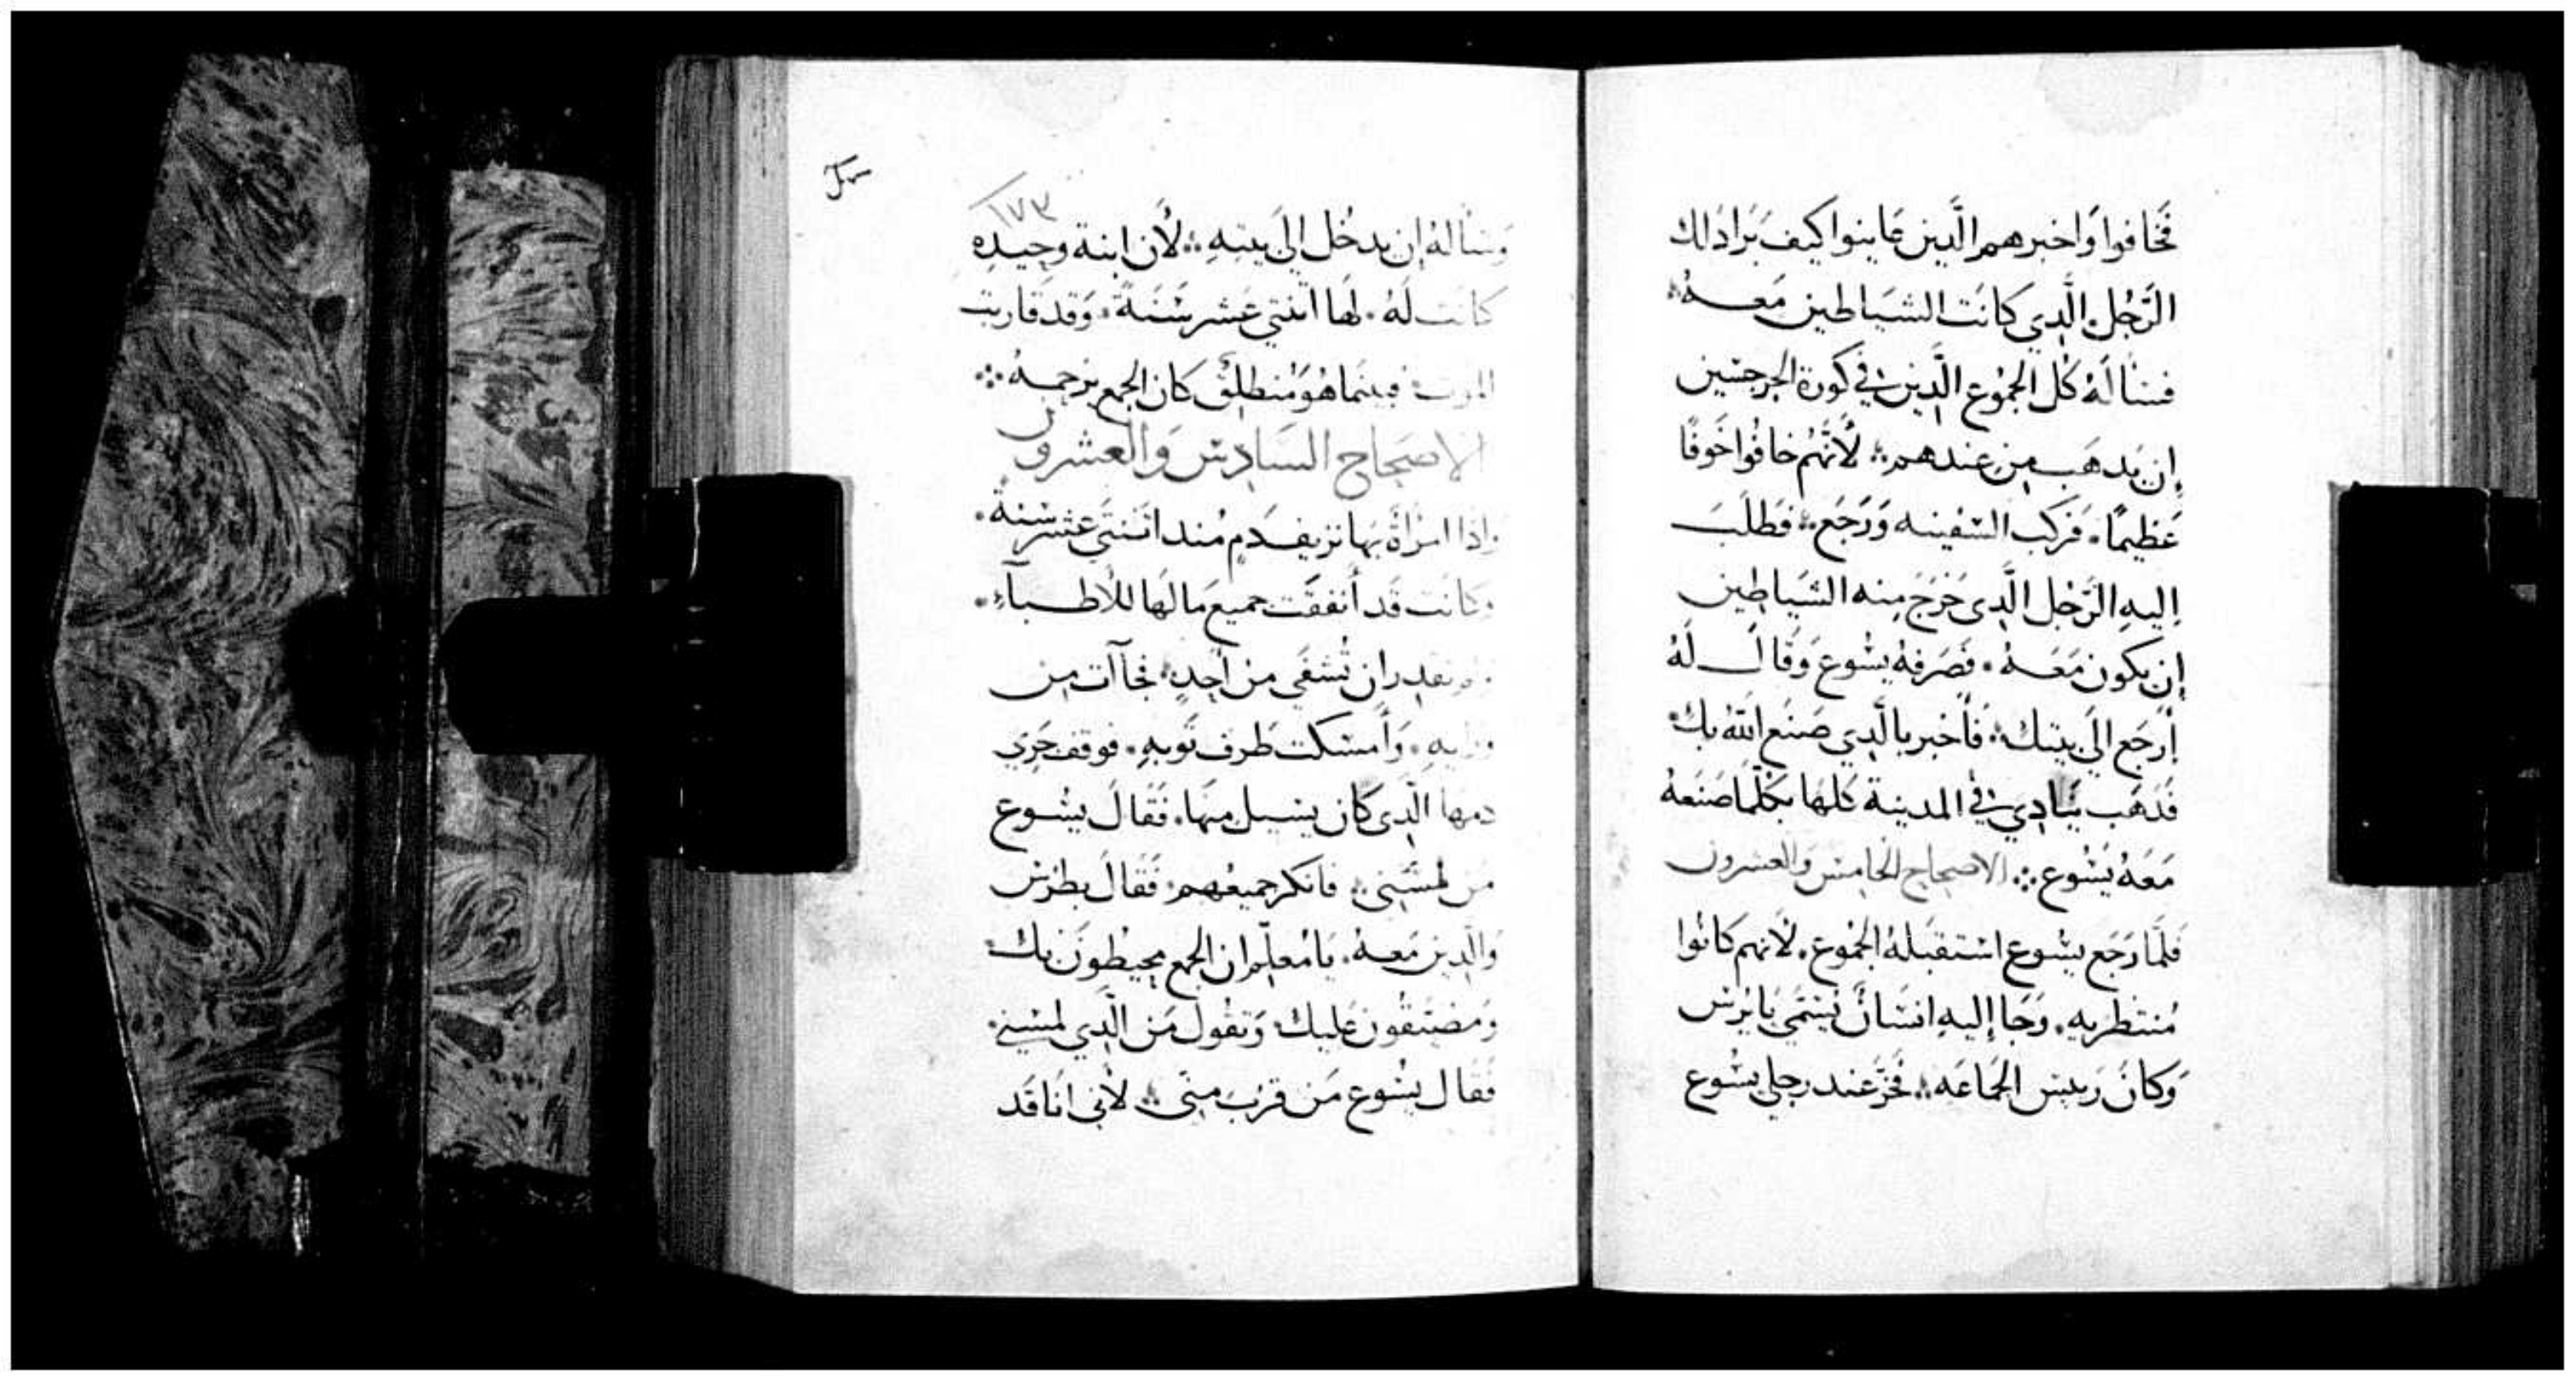 فَخَافوا وَاخبرهم الَّدين عَاينوا كيف بَرَا دَالك
الرَّجُل الَّدِي كانَت الشيَاطين مَعـــهُ
فسَالَهُ كُل الجمُوع الَّدين في كورة الجرجسَين
إن يَدهَب مِن عندهم ؛ لأنَّهُم خافُوا خَوفًا
عَظيمًا . فَركبَ السَفينه وَرَجَع ؛ فَطلَبَ
إليهِ الرَّجُل الَّدِى خَرَجَ مِنه الشيَاطِين
إن يكون مَعَـــهُ . فَصَرفهُ يسُوع وَقالَ لَهُ
إرجَع الَى بيتك ؛ فَأخبر بالَّدِي صَنَع اللّه بك
فَدهَب يُنَادِي في المدينة كلهَا بكلّمَا صَنعَهُ
مَعَهُ يَسُوع ؞ الاصحاح الخامسَ والعشرون
فَلمَّا رَجَع يسُوع استقبَلهُ الجمُوع . لأنهم كانُوا
مُنتظريه . وَجَا إليهِ انسَانٌ يُسَمَّى يَايرُس
وَكانَ رَييس الجمَاعَه ؛ فخرَّ عند رجلي يسُوع
١٧٣
وَسَألهُ إن يدخُل الَى بيتهِ ؛ لأَن ابنة وحيدِه
كانَت لَهُ . لهَا اثنتي عَشر سَنَة . وَقد قاربت
الموت فبينَما هُوَ مُنطلقٌ كان الجمع يزحمـــهُ ؞
الاصَحَاح السَادِس وَالعشرون
وإذا امرَأة بهَا نزيف دَم مُند اثنتَي عَشر سَنة .
وَكانت قَد أنفقَت جميع مَا لَها للأطـــبآءِ .
ولم تقدِر ان تُشفَى من أحدٍ ؛ فجآات مِن
ورايهِ . وَأَمسَكت طَرف ثَوبهِ . فوقف جَرِي
دمهَا الَّدِى كان يسيل منهَا . فَقالَ يسُوع
مَن لمسَني ؛ فانكر جميعُهم . فَقالَ بطرُس
وَالَّدِين مَعـــهُ . يَا مُعلّم ان الجمع محيطون بك
وَمُضيّقون عَليك . وَتقُول مَن الَّدِي لمسَني .
فَقال يسُوع مَن قرُب منّي ؛ لأنّي انَا قَد